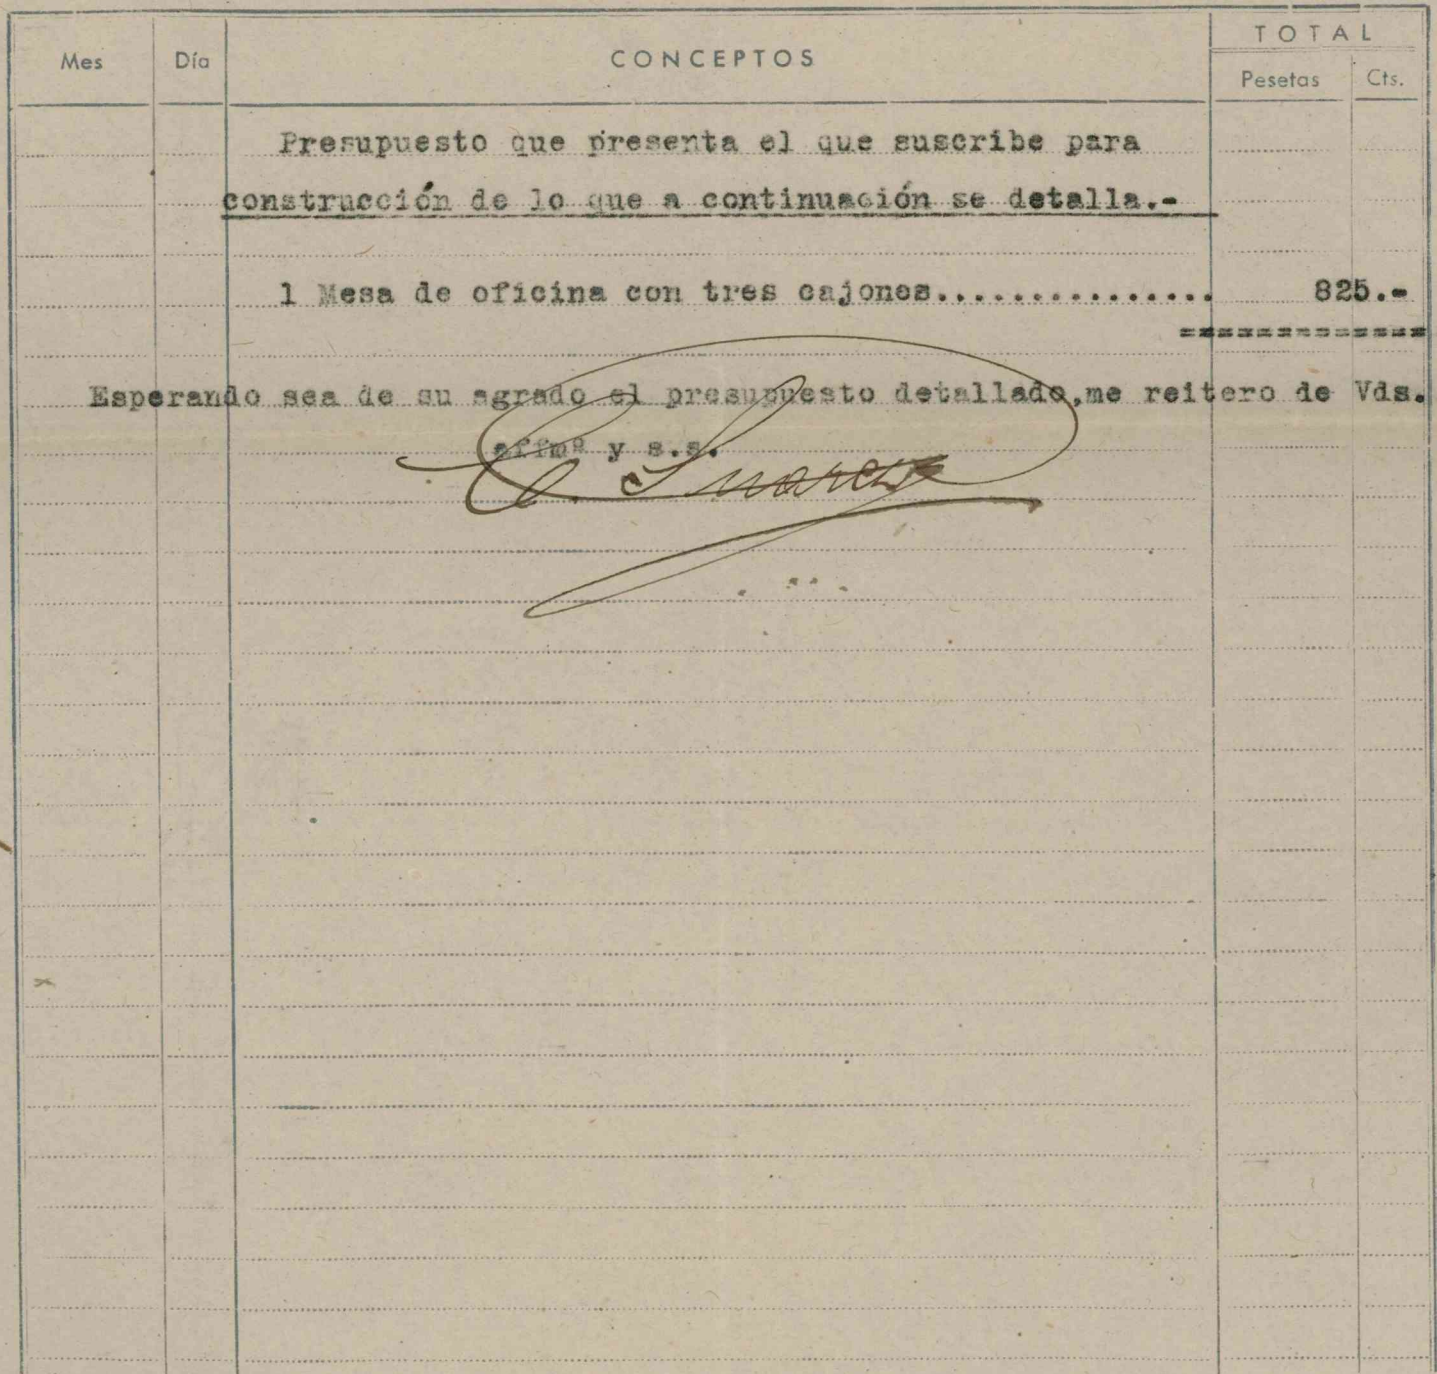 Mes Día CONCEPTOS TOTAL
Pesetas Cts.
Presupuesto que presenta el que suscribe para
construcción de lo que a continuación se detalla.-
1 Mesa de oficina con tres cajones............... 825.-
=============
Esperando sea de su agrado el presupuesto detallado,me reitero de Vds.
affmº y s.s.
C. Suarez